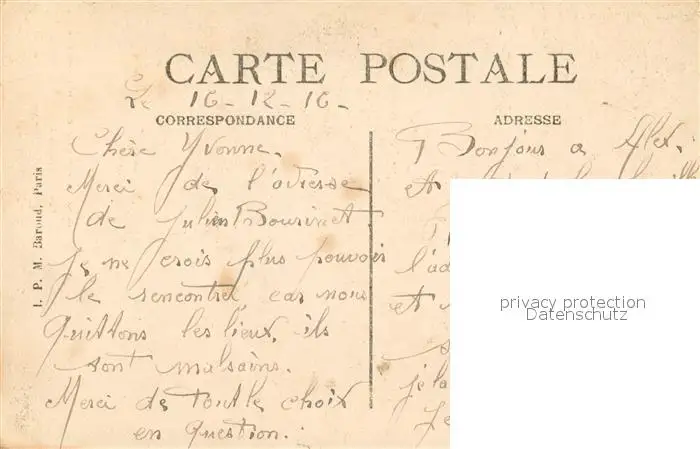 CARTE POSTALE
Le 16-12-16-
CORRESPONDANCE
ADRESSE
Chère Yvonne.
Merci de l'adresse
de Julien Bourinet
je ne crois plus pouvoir
le rencontré car nous
quittons les lieux, ils
sont malsains.
Merci de tout le choix
en question.
Bonjour a Alex.
et
l'ad
et
je la
Je
I. P. M. Baroud, Paris
privacy protection
Datenschutz